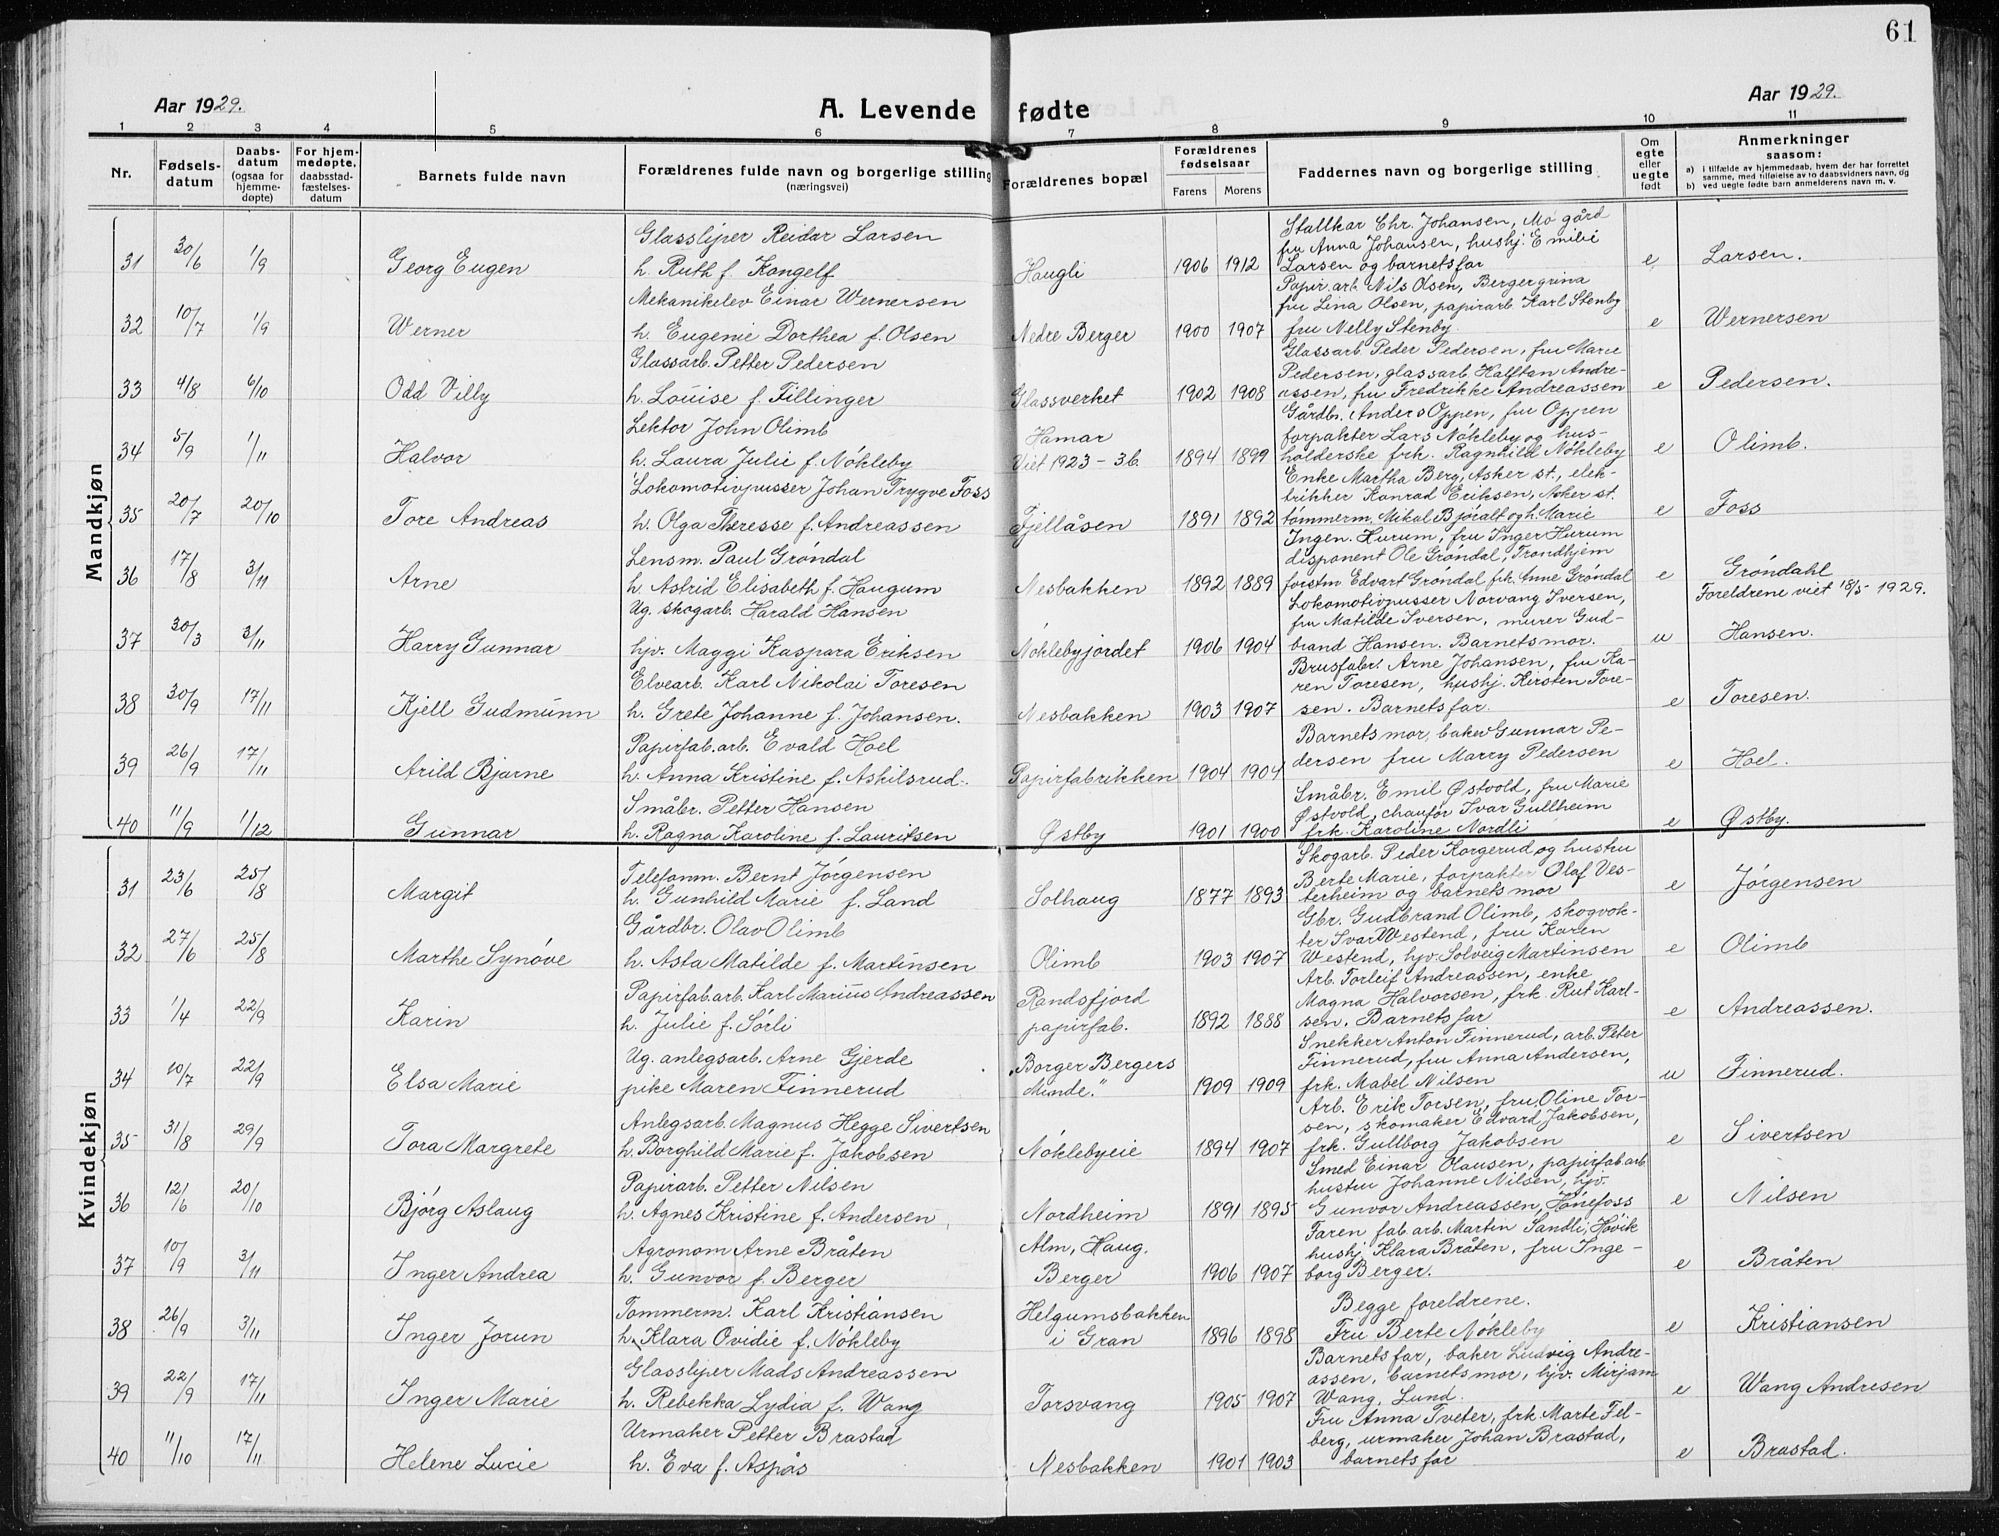 61
Aar 1929.
A. Levende fødte
Aar 1929.
1 2 3 4 5 6 7 8 9 10 11
Nr.
Fødsels-
datum
Daabs-
datum
(ogsaa for
hjemme-
døpte)
For hjem-
medøpte,
daabsstad-
fæstelses-
datum
Barnets fulde navn
Forældrenes fulde navn og borgerlige stilling
(næringsvei)
Forældrenes bopæl
Forældrenes
fødselsaar
Farens Morens
Faddernes navn og borgerlige stilling
Om
egte
eller
uegte
født
Anmerkninger
saasom:
a) i tilfælde av hjemmedaab, hvem der har forrettet
samme, med tilføielse av to daabsvidners navn, og
b) ved uegte fødte barn anmelderens navn m. v.
Mandkjøn
31 30/6 1/9 Georg Eugen
Glassliper Reidar Larsen
h. Ruth f. Kongelf
Haugli 1906 1912
Stallkar Chr. Johansen, Mo gård
fru Anna Johansen, hushj. Emilie
Larsen og barnets far
e Larsen.
32 10/7 1/9 Werner
Mekanikelev Einar Wernersen
h. Eugenie Dorthea f. Olsen
Nedre Berger 1900 1907
Papir.arb. Nils Olsen, Bergergrina
fru Lina Olsen, papirarb. Karl Stenby
fru Nelly Stenby.
e Wernersen
33 4/8 6/10 Odd Villy
Glassarb. Petter Pedersen
h. Louise f. Fillinger
Glassverket 1902 1908
Glassarb. Peder Pedersen, fru Marie
Pedersen, glassarb. Halftan Andre-
assen, fru Fredrikke Andreassen
e Pedersen.
34 5/9 1/11 Halvor
Lektor John Olimb
h. Laura Julie f. Nøkleby
Hamar
Viet 1923 - 36. 1894 1899
Gårdbr. Anders Oppen, fru Oppen
forpakter Lars Nøkleby og hus-
holderske frk. Ragnhild Nøkleby
e Olimb.
35 20/7 20/10 Tore Andreas
Lokomotivpusser Johan Trygve Foss
h. Olga Theresse f. Andreassen
Fjellåsen 1891 1892
Enke Martha Berg, Asker st., elek-
trikker Konrad Eriksen, Asker st.
tømmerm. Mikal Bjøralt og h. Marie
e Foss
36 17/8 3/11 Arne
Lensm. Paul Grøndal
h. Astrid Elisabeth f. Haugum
Nesbakken 1892 1889
Ingen. Hurum, fru Inger Hurum
disponent Ole Grøndal, Trondhjem
forstm Edvart Grøndal frk. Anne Grøndal
e Grøndahl
Foreldrene viet 18/5 1929.
37 30/3 3/11 Harry Gunnar
Ug. skogarb. Harald Hansen
hjv. Maggi Kaspara Eriksen
Nøklebyjordet 1906 1904
Lokomotivpusser Norvang Iversen,
fru Matilde Iversen, murer Gud-
brand Hansen. Barnets mor.
u Hansen.
38 30/9 17/11 Kjell Gudmunn
Elvearb. Karl Nikolai Toresen
h. Grete Johanne f. Johansen.
Nesbakken 1903 1907
Brusfabr. Arne Johansen, fru Ka-
ren Toresen, hushj. Kirsten Tore-
sen. Barnets far.
e Toresen.
39 26/9 17/11 Arild Bjarne
Papirfab.arb. Evald Hoel
h. Anna Kristine f. Askilsrud.
Papirfabrikken 1904 1904
Barnets mor, baker Gunnar Pe-
dersen fru Marry Pedersen
e Hoel.
40 11/9 1/12 Gunnar
Småbr. Petter Hansen
h. Ragna Karoline f. Lauritsen
Østby 1901 1900
Småbr. Emil Østvold, fru Marie
Østvold, chaufør Ivar Gullheim
frk. Karoline Nordli
e Østby.
Kvindekjøn
31 23/6 25/8 Margit
Telefonm. Bernt Jørgensen
h. Gunhild Marie f. Land
Solhaug 1877 1893
Skogarb. Peder Korgerud og hustru
Berte Marie, forpakter Olaf Ves-
terheim og barnets mor
e Jørgensen
32 27/6 25/8 Marthe Synøve
Gårdbr. Olav Olimb
h. Asta Matilde f. Martinsen
Olimb 1903 1907
Gbr. Gudbrand Olimb, skogvok-
ter Svar Westend, fru Karen
Westend, hjv. Solveig Martinsen
e Olimb
33 1/4 22/9 Karin
Papirfab.arb. Karl Marius Andreassen
h. Julie f. Sørli
Randsfjord
papirfab. 1892 1888
Arb. Torleif Andreassen, enke
Magna Halvorsen, frk. Rut Karl-
sen. Barnets far
e Andreassen.
34 10/7 22/9 Elsa Marie
Ug. anlegsarb. Arne Gjerde
pike Maren Finnerud
"Borger Bergers
Minde." 1909 1909
Snekker Anton Finnerud, arb. Peter
Finnerud, fru Anna Andersen,
frk. Mabel Nilsen
u Finnerud.
35 31/8 29/9 Tora Margrete
Anlegsarb. Magnus Hegge Sivertsen
h. Borghild Marie f. Jakobsen
Nøklebyeie 1894 1907
Arb. Erik Torsen, fru Oline Tor-
sen, skomaker Edvard Jakobsen,
frk. Gullborg Jakobsen
e Sivertsen
36 12/6 20/10 Bjørg Aslaug
Papirarb. Petter Nilsen
h. Agnes Kristine f. Andersen
Nordheim 1891 1895
Smed Einar Olausen, papirfab.arb.
hustru Johanne Nilsen, hjv.
Gunvor Andreassen, Hønefoss
e Nilsen
37 10/9 3/11 Inger Andrea
Agronom Arne Bråten
h. Gunvor f. Berger
Alm, Haug.
Berger 1906 1907
Faren fab.arb. Martin Sandli, Høvik
hushj. Klara Bråten, fru Inge-
borg Berger.
e Bråten
38 26/9 3/11 Inger Jorun
Tømmerm. Karl Kristiansen
h. Klara Ovidie f. Nøkleby
Helgumsbakken
i Gran 1896 1898
Begge foreldrene.
Fru Berte Nøkleby
e Kristiansen
39 22/9 17/11 Inger Marie
Glassliper Mads Andreassen
h. Rebekka Lydia f. Wang
Torsvang 1905 1907
Barnets far, baker Ludvig Andre-
assen, barnets mor, hjv. Mirjam
Wang, Lund.
e Wang Andresen
40 11/10 17/11 Helene Lucie
Urmaker Petter Brastad
h. Eva f. Aspås
Nesbakken 1901 1903
Fru Anna Tveter, frk. Marte Fel-
berg, urmaker Johan Brastad,
barnets far
e Brastad.